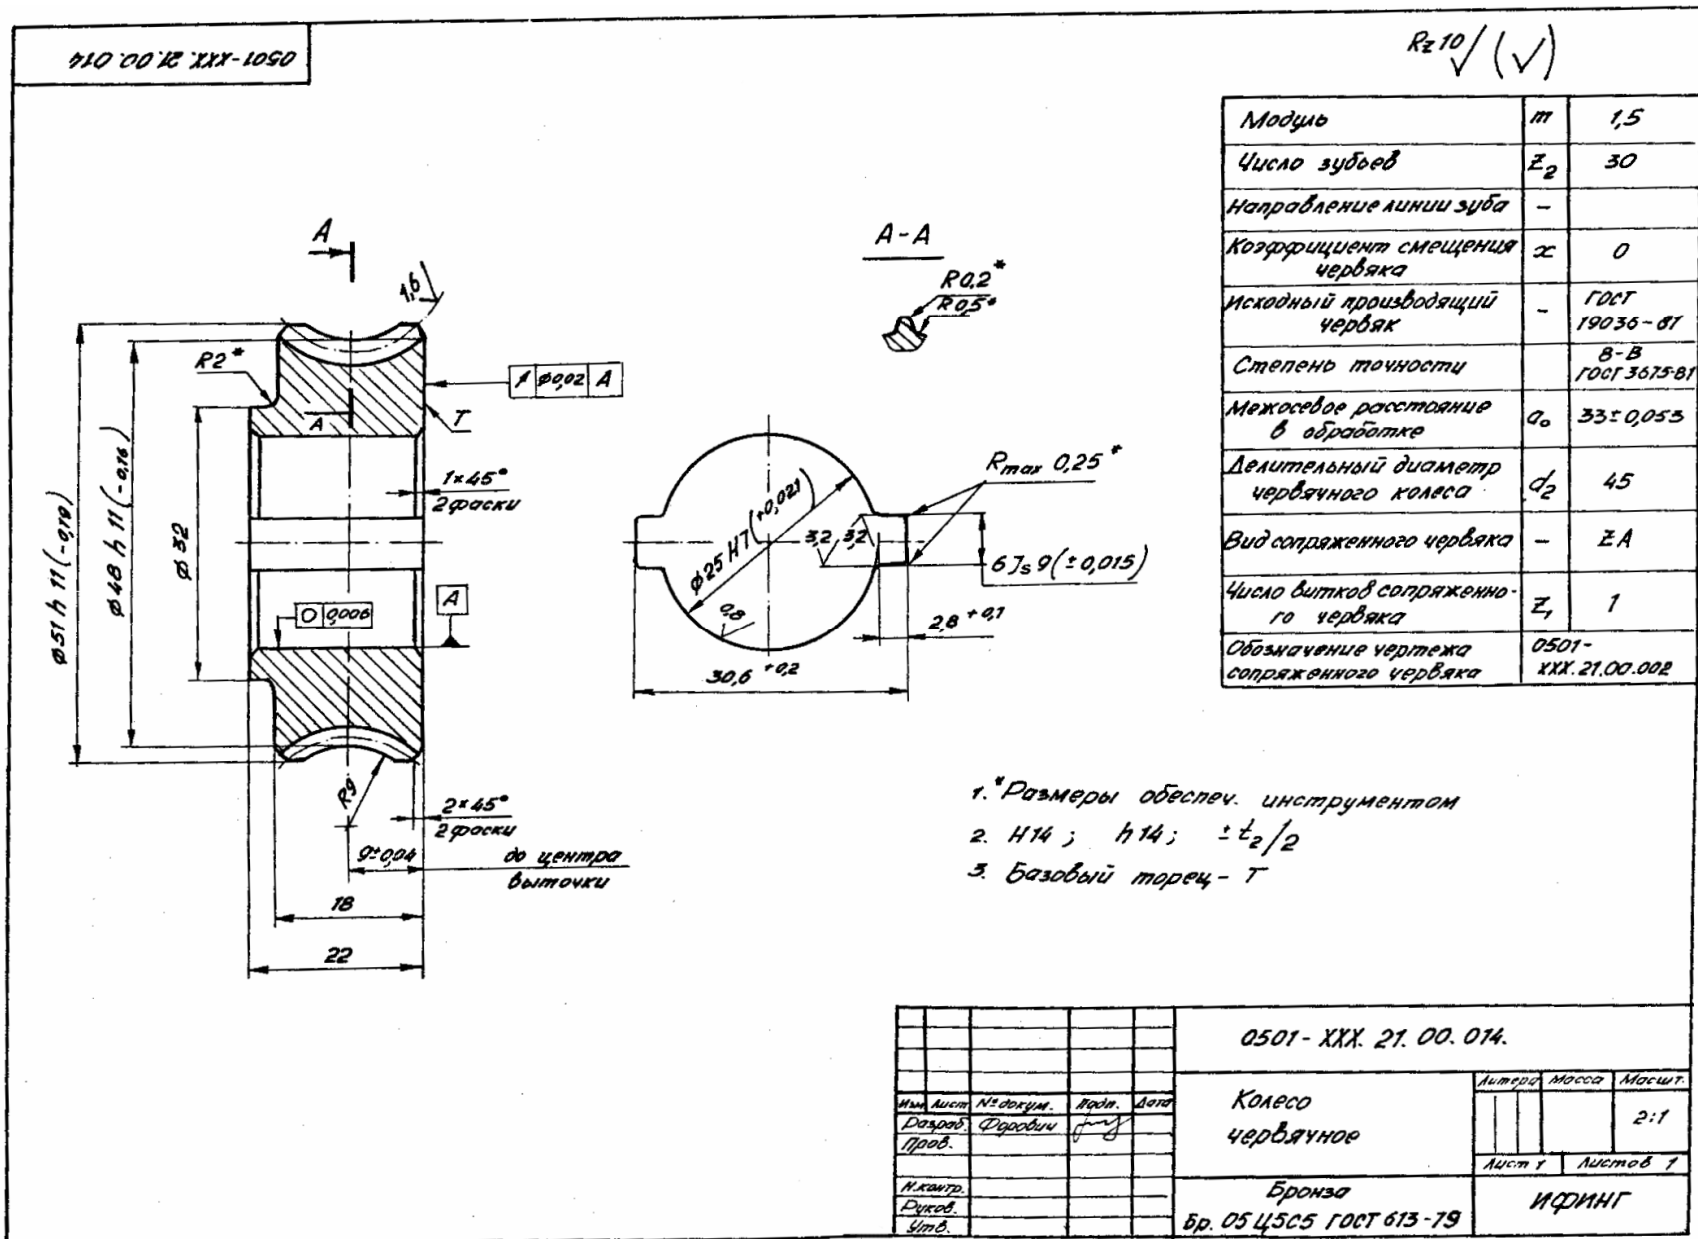 0501-XXX.21.00.014
Rz 10 √ (√)
Модуль m 1,5
Число зубьев Z2 30
Направление линии зуба -
Коэффициент смещения
червяка x 0
Исходный производящий
червяк - ГОСТ
19036-81
Степень точности 8-В
ГОСТ 3675-81
Межосевое расстояние
в обработке a₀ 33±0,053
Делительный диаметр
червячного колеса d2 45
Вид сопряженного червяка - ZA
Число витков сопряженно-
го червяка Z1 1
Обозначение чертежа
сопряженного червяка 0501-
XXX.21.00.002
А
1,6
R2*
↗ ⌀0,02 А
Т
А
1×45°
2 фаски
⌀51 h11(-0,19)
⌀48 h11(-0,16)
⌀32
О 0,006
А
R9
2×45°
2 фаски
9±0,04 до центра
выточки
18
22
А-А
R0,2*
R0,5*
Rmax 0,25*
⌀25 H7(+0,021)
3,2 3,2
0,8
6Js9(±0,015)
2,8+0,1
30,6+0,2
1.*Размеры обеспеч. инструментом
2. H14; h14; ±t2/2
3. Базовый торец - Т
0501-XXX. 21. 00. 014.
Изм Лист № докум. Подп. Дата
Разраб. Форович
Пров.
Н.контр.
Руков.
Утв.
Колесо
червячное
Литера Масса Масшт.
2:1
Лист 1 Листов 1
Бронза
Бр. О5Ц5С5 ГОСТ 613-79
ИФИНГ